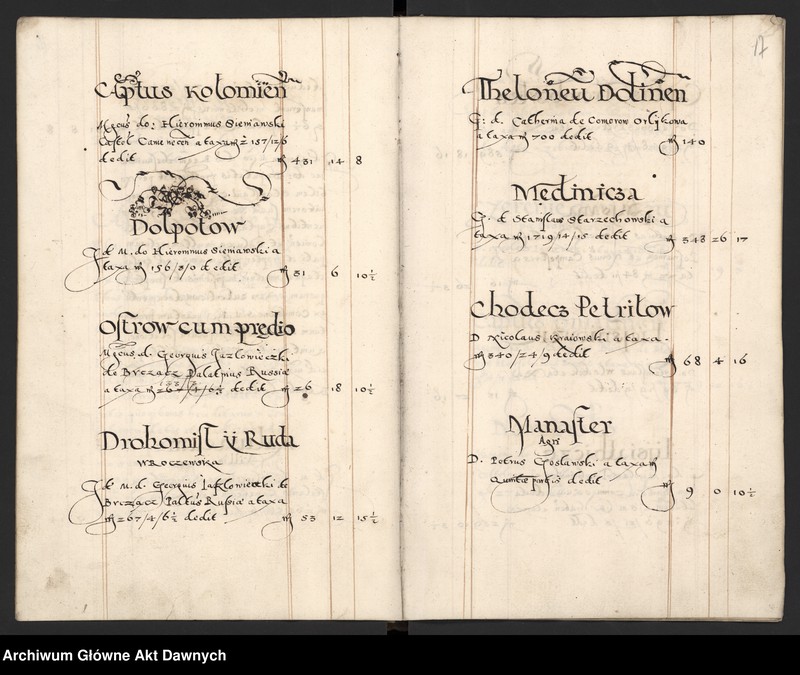 Cap̃tus Kolomień
Mgcus do: Hieronimus Sieniawski
Castel Camenecen̄ a taxa m̃ 2157/12/6
dedit m̃ 431 14 8
Dolpotow
Id M. do Hieronimus Sieniawski a
taxa m̃ 156/3/0 dedit m̃ 31 6 10½
Ostrow cum prędio
Mgcus d. Georgius Jazlowieczki
de Brczacz Palatinus Russiæ
a taxa m̃ dedit m̃ 26 18 10½
Drohomist ÿ Ruda
Id M. d. Georgius Jazlowieczki de
Brczacz Paltus Russiæ a taxa
m̃ 267/4/6½ dedit m̃ 53 12 15½
17
Theloneū Dolinēn
G: d. Catherina de Comorow Orlÿkowa
a taxa m̃ 700 dedit m̃ 140
Mędinicza
G. d Stanislaw Starzechowski a
taxa m̃ 1719/14/15 dedit m̃ 343 26 17
Chodecz Petriłow
D Nicolaus a taxa
m̃ 340/24/9 dedit m̃ 68 4 16
Manaster
Agri
D. Petrus Goslawski a taxa m̃
Quintæ partis dedit m̃ 9 0 10½
Archiwum Główne Akt Dawnych